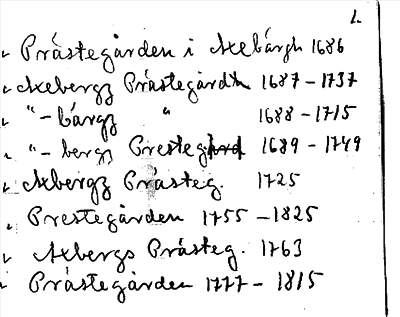 L.
„ Prästegården i Axebärgh 1686
„ Axebergz Prästegårdh 1687-1737
„ "-bärgz " 1688-1715
„ "-bergz Prestegård 1689-1749
„ Axbergz Prästeg. 1725
„ Prestegården 1755-1825
„ Axbergs Prästeg. 1763
„ Prästegården 1777-1815